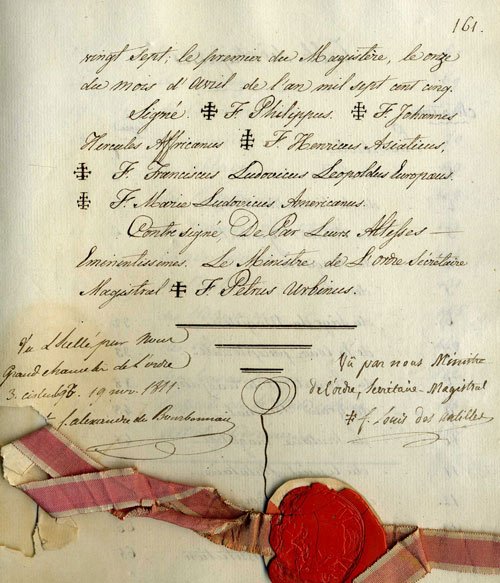 161.
vingt Sept; le premier du Magistère, le onze
du mois d'avril de l'an mil sept cent cinq.
Signé. ✠ F. Philippus. ✠ F. Johannes
Hercules Affricanus ✠ F. Henricus Asiaticus,
✠ F. Franciscus Ludovicus Leopoldus Europaus.
✠ F. Marie Ludovicus Americanus.
Contre signé, De Par Leurs Altesses —
Eminentissimes. Le Ministre de L'ordre Sécrétaire
Magistral ✠ F. Petrus Urbinus.
Vu & Scellé par Nous
Grand chancelier de l'ordre
1811.
f. alexandre de Bourbonnais
Vû par nous Ministre
de l'ordre, Secretaire-Magistral
✠ f. Louis des antilles